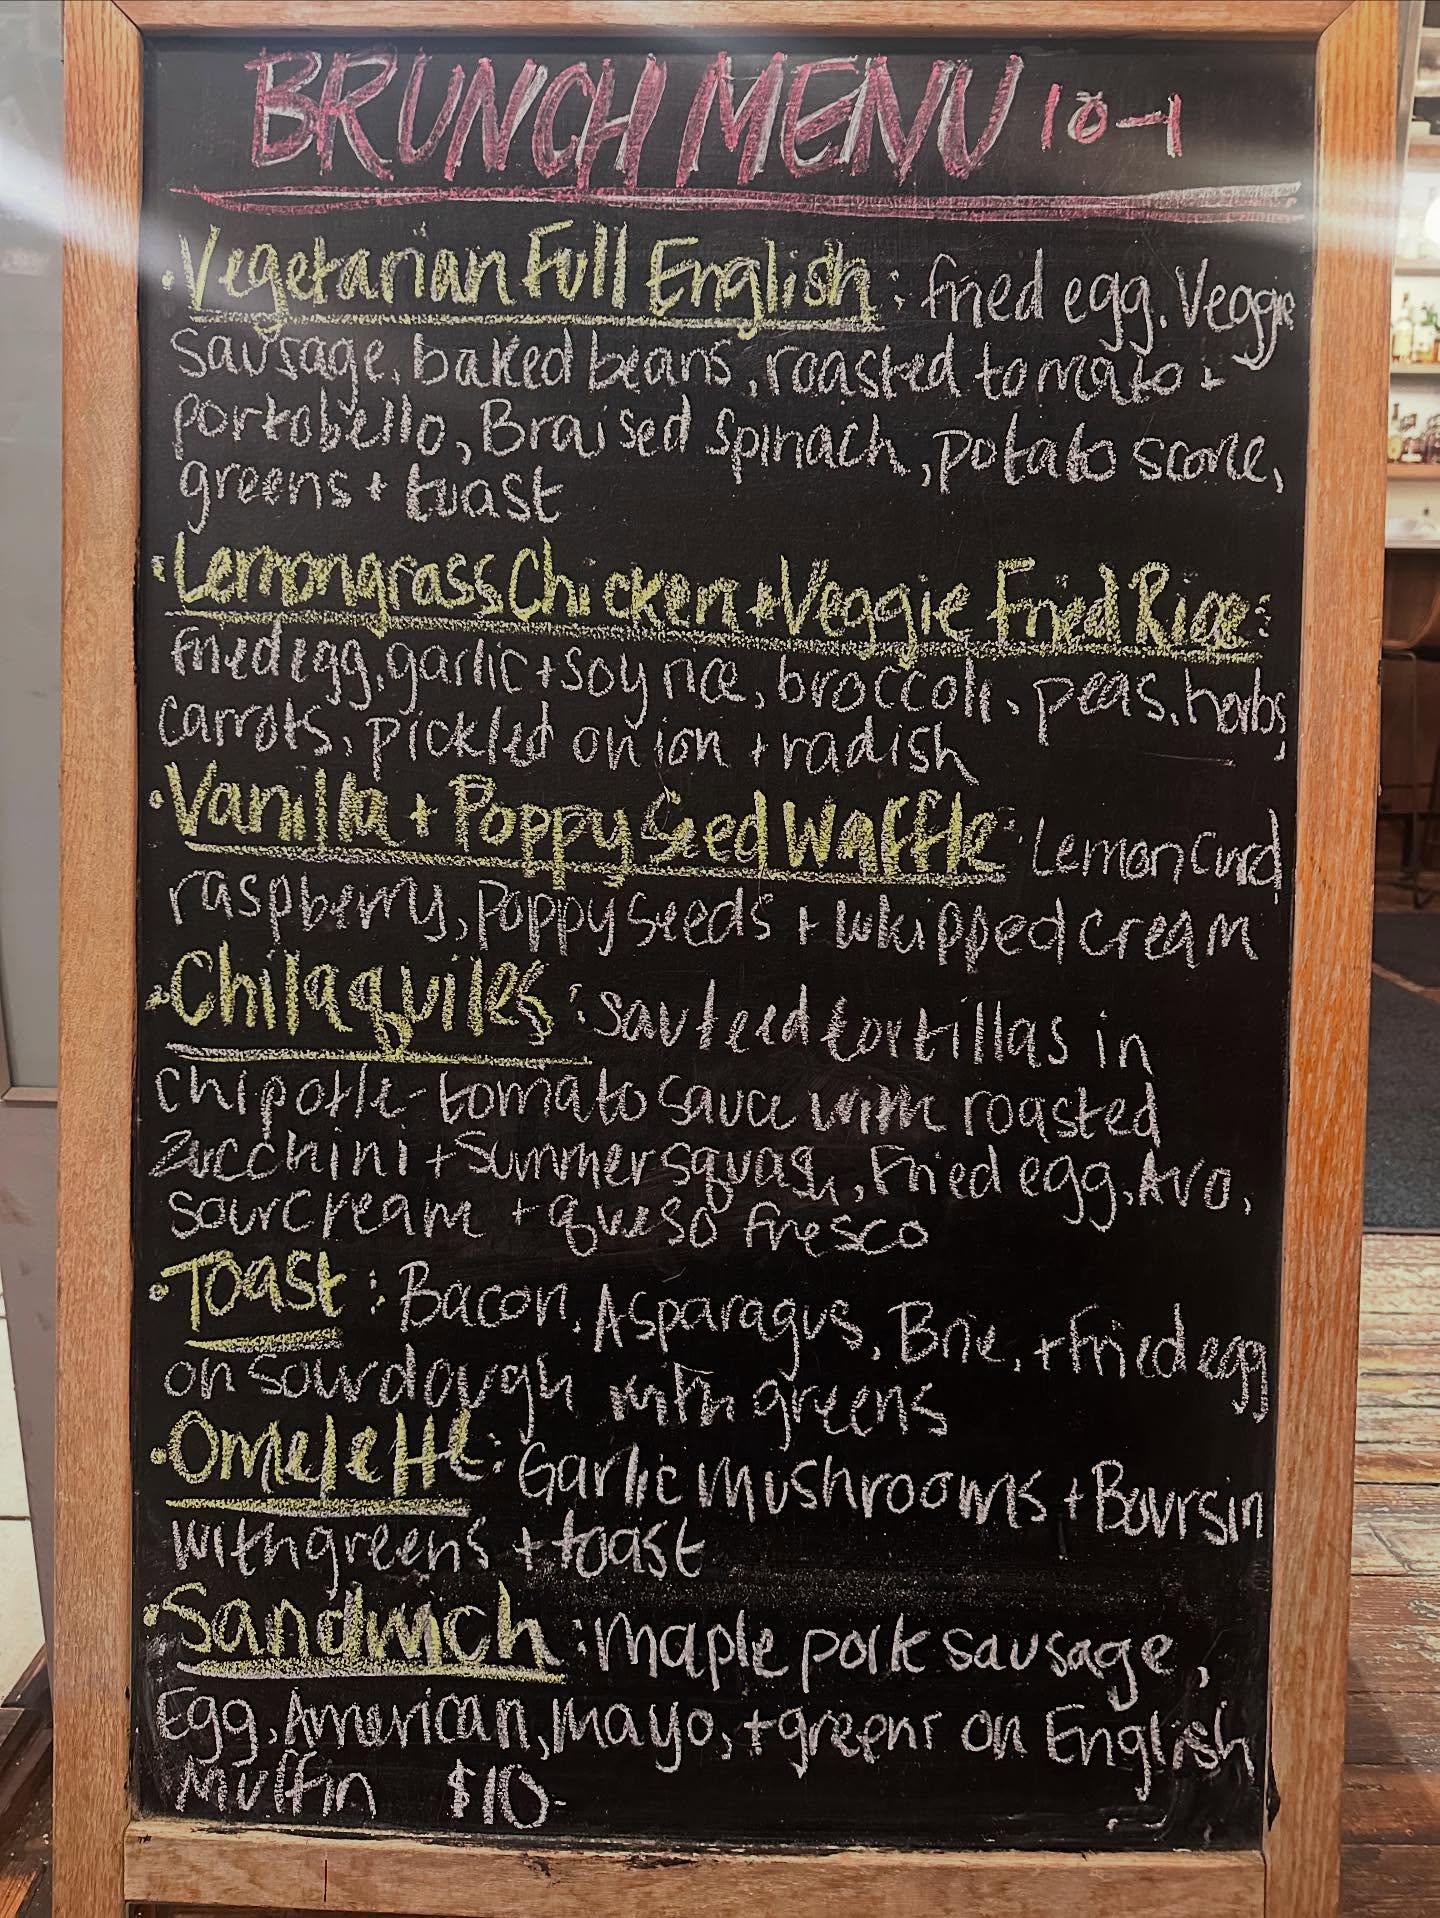 BRUNCH MENU 10-1
· Vegetarian Full English: fried egg, Veggie
Sausage, baked beans, roasted tomato +
portobello, Braised Spinach, potato scone,
greens + toast
· Lemongrass Chicken + Veggie Fried Rice:
Fried egg, garlic + soy rice, broccoli, peas, herbs,
carrots, pickled onion + radish
· Vanilla + Poppy Seed Waffle: Lemon Curd,
raspberry, Poppy Seeds + Whipped cream
· Chilaquiles: sauteed tortillas in
chipotle-tomato sauce with roasted
Zucchini + Summer squash, Fried egg, Avo,
sour cream + queso fresco
· Toast: Bacon, Asparagus, Brie, + fried egg
on sourdough with greens
· Omelette: Garlic Mushrooms + Boursin
with greens + toast
· Sandwich: maple pork sausage,
Egg, American, Mayo, + greens on English
Muffin $10-